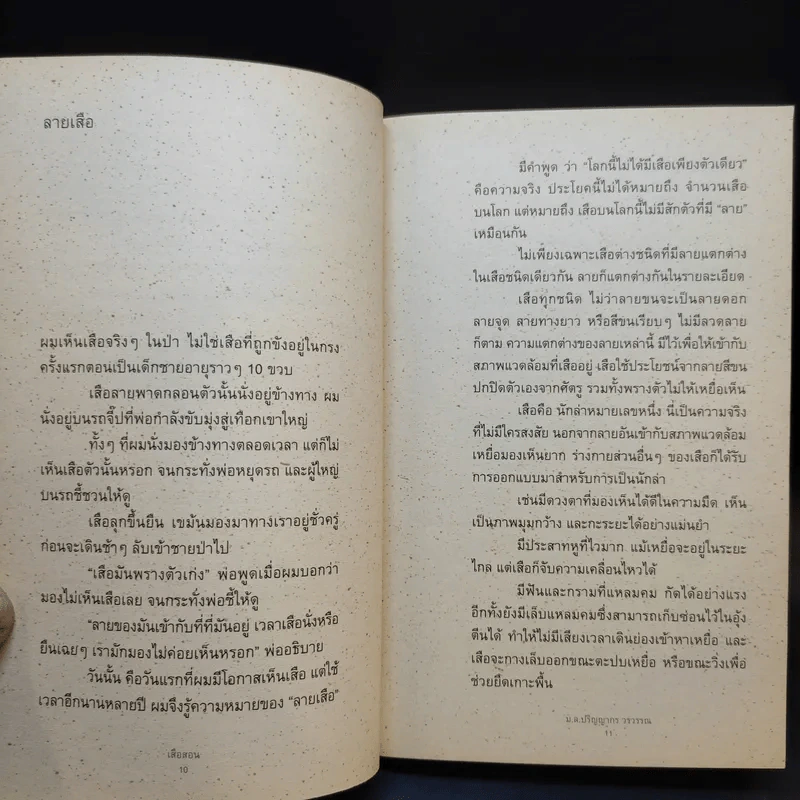 ลายเสือ
ผมเห็นเสือจริงๆ ในป่า ไม่ใช่เสือที่ถูกขังอยู่ในกรง
ครั้งแรกตอนเป็นเด็กชายอายุราวๆ 10 ขวบ
เสือลายพาดกลอนตัวนั้นนั่งอยู่ข้างทาง ผม
นั่งอยู่บนรถจี๊ปที่พ่อกำลังขับมุ่งสู่เทือกเขาใหญ่
ทั้งๆ ที่ผมนั่งมองข้างทางตลอดเวลา แต่ก็ไม่
เห็นเสือตัวนั้นหรอก จนกระทั่งพ่อหยุดรถ และผู้ใหญ่
บนรถชี้ชวนให้ดู
เสือลุกขึ้นยืน เขม้นมองมาทางเราอยู่ชั่วครู่
ก่อนจะเดินช้าๆ ลับเข้าชายป่าไป
"เสือมันพรางตัวเก่ง" พ่อพูดเมื่อผมบอกว่า
มองไม่เห็นเสือเลย จนกระทั่งพ่อชี้ให้ดู
"ลายของมันเข้ากับที่ที่มันอยู่ เวลาเสือนั่งหรือ
ยืนเฉยๆ เรามักมองไม่ค่อยเห็นหรอก" พ่ออธิบาย
วันนั้น คือวันแรกที่ผมมีโอกาสเห็นเสือ แต่ใช้
เวลาอีกนานหลายปี ผมจึงรู้ความหมายของ "ลายเสือ"
เสือสอน
10
มีคำพูด ว่า "โลกนี้ไม่ได้มีเสือเพียงตัวเดียว"
คือความจริง ประโยคนี้ไม่ได้หมายถึง จำนวนเสือ
บนโลก แต่หมายถึง เสือบนโลกนี้ไม่มีสักตัวที่มี "ลาย"
เหมือนกัน
ไม่เพียงเฉพาะเสือต่างชนิดที่มีลายแตกต่าง
ในเสือชนิดเดียวกัน ลายก็แตกต่างกันในรายละเอียด
เสือทุกชนิด ไม่ว่าลายขนจะเป็นลายดอก
ลายจุด ลายทางยาว หรือสีขนเรียบๆ ไม่มีลวดลาย
ก็ตาม ความแตกต่างของลายเหล่านี้ มีไว้เพื่อให้เข้ากับ
สภาพแวดล้อมที่เสืออยู่ เสือใช้ประโยชน์จากลายสีขน
ปกปิดตัวเองจากศัตรู รวมทั้งพรางตัวไม่ให้เหยื่อเห็น
เสือคือ นักล่าหมายเลขหนึ่ง นี่เป็นความจริง
ที่ไม่มีใครสงสัย นอกจากลายอันเข้ากับสภาพแวดล้อม
เหยื่อมองเห็นยาก ร่างกายส่วนอื่นๆ ของเสือก็ได้รับ
การออกแบบมาสำหรับการเป็นนักล่า
เช่นมีดวงตาที่มองเห็นได้ดีในความมืด เห็น
เป็นภาพมุมกว้าง และกะระยะได้อย่างแม่นยำ
มีประสาทหูที่ไวมาก แม้เหยื่อจะอยู่ในระยะ
ไกล แต่เสือก็จับความเคลื่อนไหวได้
มีฟันและกรามที่แหลมคม กัดได้อย่างแรง
อีกทั้งยังมีเล็บแหลมคมซึ่งสามารถเก็บซ่อนไว้ในอุ้ง
ตีนได้ ทำให้ไม่มีเสียงเวลาเดินย่องเข้าหาเหยื่อ และ
เสือจะกางเล็บออกขณะตะปบเหยื่อ หรือขณะวิ่งเพื่อ
ช่วยยึดเกาะพื้น
ม.ล.ปริญญากร วรวรรณ
11